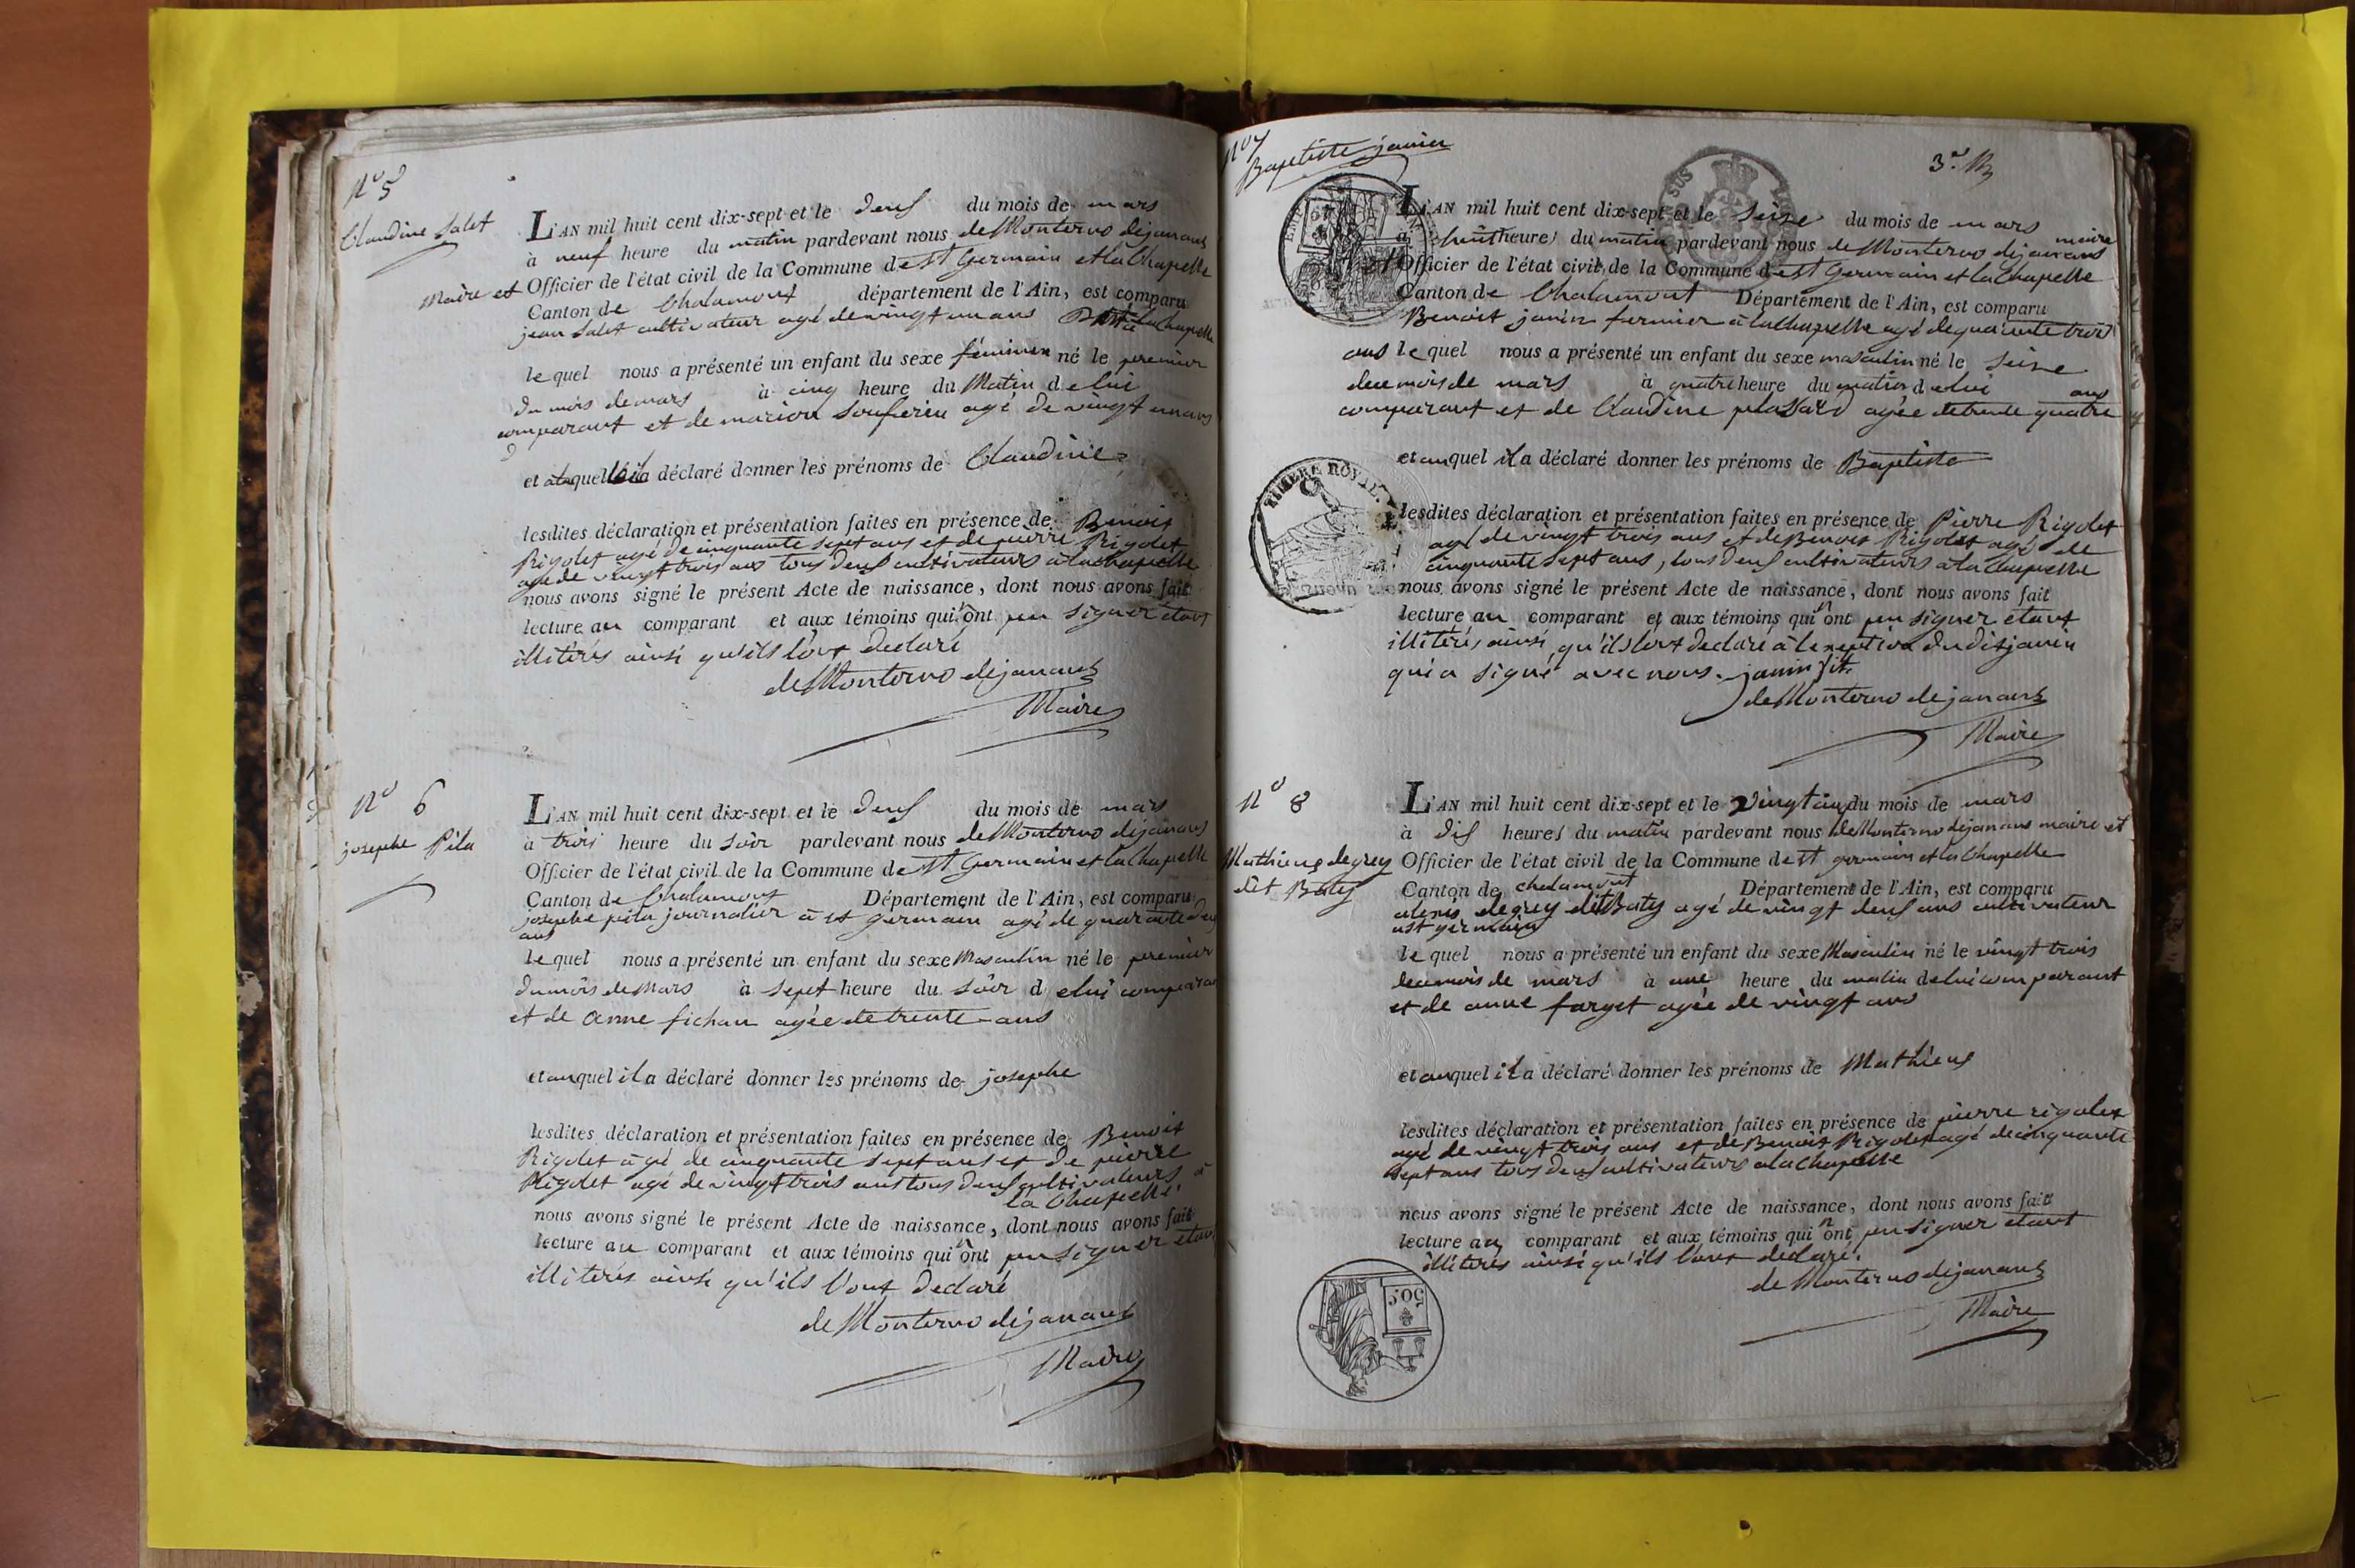 N° 5
Claudine Salet
L'AN mil huit cent dix-sept et le deux du mois de mars
à neuf heure du matin pardevant nous de Monterno dejanans
Maire et Officier de l'état civil de la Commune de St Germain et la Chapelle
Canton de Chalamont département de l'Ain, est comparu
jean Salet cultivateur agé de vingt un ans la Chapelle
lequel nous a présenté un enfant du sexe féminin né le premier
du mois de mars à cinq heure du Matin de lui
comparant et de marion agé de vingt un ans
et a laquelle il a déclaré donner les prénoms de Claudine
lesdites déclaration et présentation faites en présence de Benoit
Rigolet agé de cinquante sept ans et de pierre Rigolet
agé de vingt trois ans tous deux cultivateurs a la chapelle
nous avons signé le présent Acte de naissance, dont nous avons fait
lecture au comparant et aux témoins qui n'ont pu signer etant
illitérés ainsi qu'ils l'ont declaré
de Monterno dejanans
Maire
N° 6
josephe Pila
L'AN mil huit cent dix-sept et le deux du mois de mars
à trois heure du soir pardevant nous de Monterno dejanans
Officier de l'état civil de la Commune de St Germain et la Chapelle
Canton de Chalamont Département de l'Ain, est comparu
josephe pila journalier à st germain agé de quarante deux
ans
lequel nous a présenté un enfant du sexe Masculin né le premier
du mois de Mars à sept heure du soir de lui comparant
et de anne fichan agée de trente ans
et auquel il a déclaré donner les prénoms de josephe
lesdites déclaration et présentation faites en présence de Benoit
Rigolet agé de cinquante sept ans et de pierre
Rigolet agé de vingt trois ans tous deux cultivateurs à
la Chapelle
nous avons signé le présent Acte de naissance, dont nous avons fait
lecture au comparant et aux témoins qui n'ont pu signer etant
illitérés ainsi qu'ils l'ont declaré
de Monterno dejanans
Maire
N° 7
Baptiste janin
3e
L'AN mil huit cent dix-sept et le seize du mois de mars
à huit heures du matin pardevant nous de Monterno dejanans maire
Officier de l'état civil de la Commune de St Germain et la Chapelle
Canton de Chalamont Département de l'Ain, est comparu
Benoit janin fermier à la Chapelle agé de quarante trois
ans lequel nous a présenté un enfant du sexe masculin né le seize
du mois de mars à quatre heure du matin de lui
comparant et de Claudine plassard agée de trente quatre ans
et auquel il a déclaré donner les prénoms de Baptiste
TIMBRE ROYAL
lesdites déclaration et présentation faites en présence de Pierre Rigolet
agé de vingt trois ans et de Benoit Rigolet agé de
cinquante sept ans, tous deux cultivateurs a la Chapelle
nous avons signé le présent Acte de naissance, dont nous avons fait
lecture au comparant et aux témoins qui n'ont pu signer etant
illitérés ainsi qu'ils l'ont declaré à l'exeption du dit janin
qui a signé avec nous. janin
de Monterno dejanans
Maire
N° 8
Mathieux degrey
dit Baty
L'AN mil huit cent dix-sept et le Vingt cinq du mois de mars
à dix heures du matin pardevant nous de Monterno dejanans maire et
Officier de l'état civil de la Commune de St germain et la Chapelle
Canton de chalamont Département de l'Ain, est comparu
alexis degrey dit Baty agé de vingt deux ans cultivateur
a st germain
lequel nous a présenté un enfant du sexe Masculin né le vingt trois
du mois de mars à une heure du matin de lui comparant
et de anne farget agée de vingt ans
et auquel il a déclaré donner les prénoms de Mathieux
lesdites déclaration et présentation faites en présence de pierre rigolet
agé de vingt trois ans et de Benoit Rigolet agé de cinquante
sept ans tous deux cultivateurs a la chapelle
nous avons signé le présent Acte de naissance, dont nous avons fait
lecture au comparant et aux témoins qui n'ont pu signer etant
illitérés ainsi qu'ils l'ont declaré.
de Monterno dejanans
Maire
50c